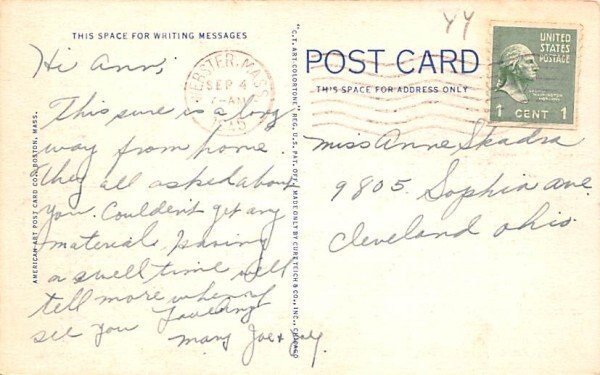 THIS SPACE FOR WRITING MESSAGES
Hi Ann,
This sure is a long
way from home.
They all asked about
you. Couldn't get any
material. Having
a swell time will
tell more when I
see you
Mary Joe &
AMERICAN ART POST CARD CO., BOSTON, MASS.
"C.T. ART-COLORTONE" REG. U.S. PAT. OFF. MADE ONLY BY CURT TEICH & CO., INC., CHICAGO
WEBSTER, MASS.
SEP 4
7-AM
POST CARD
THIS SPACE FOR ADDRESS ONLY
YY
UNITED
STATES
POSTAGE
WASHINGTON
1 CENT 1
Miss Anne Skadra
9805 Sophia ave
Cleveland Ohio.